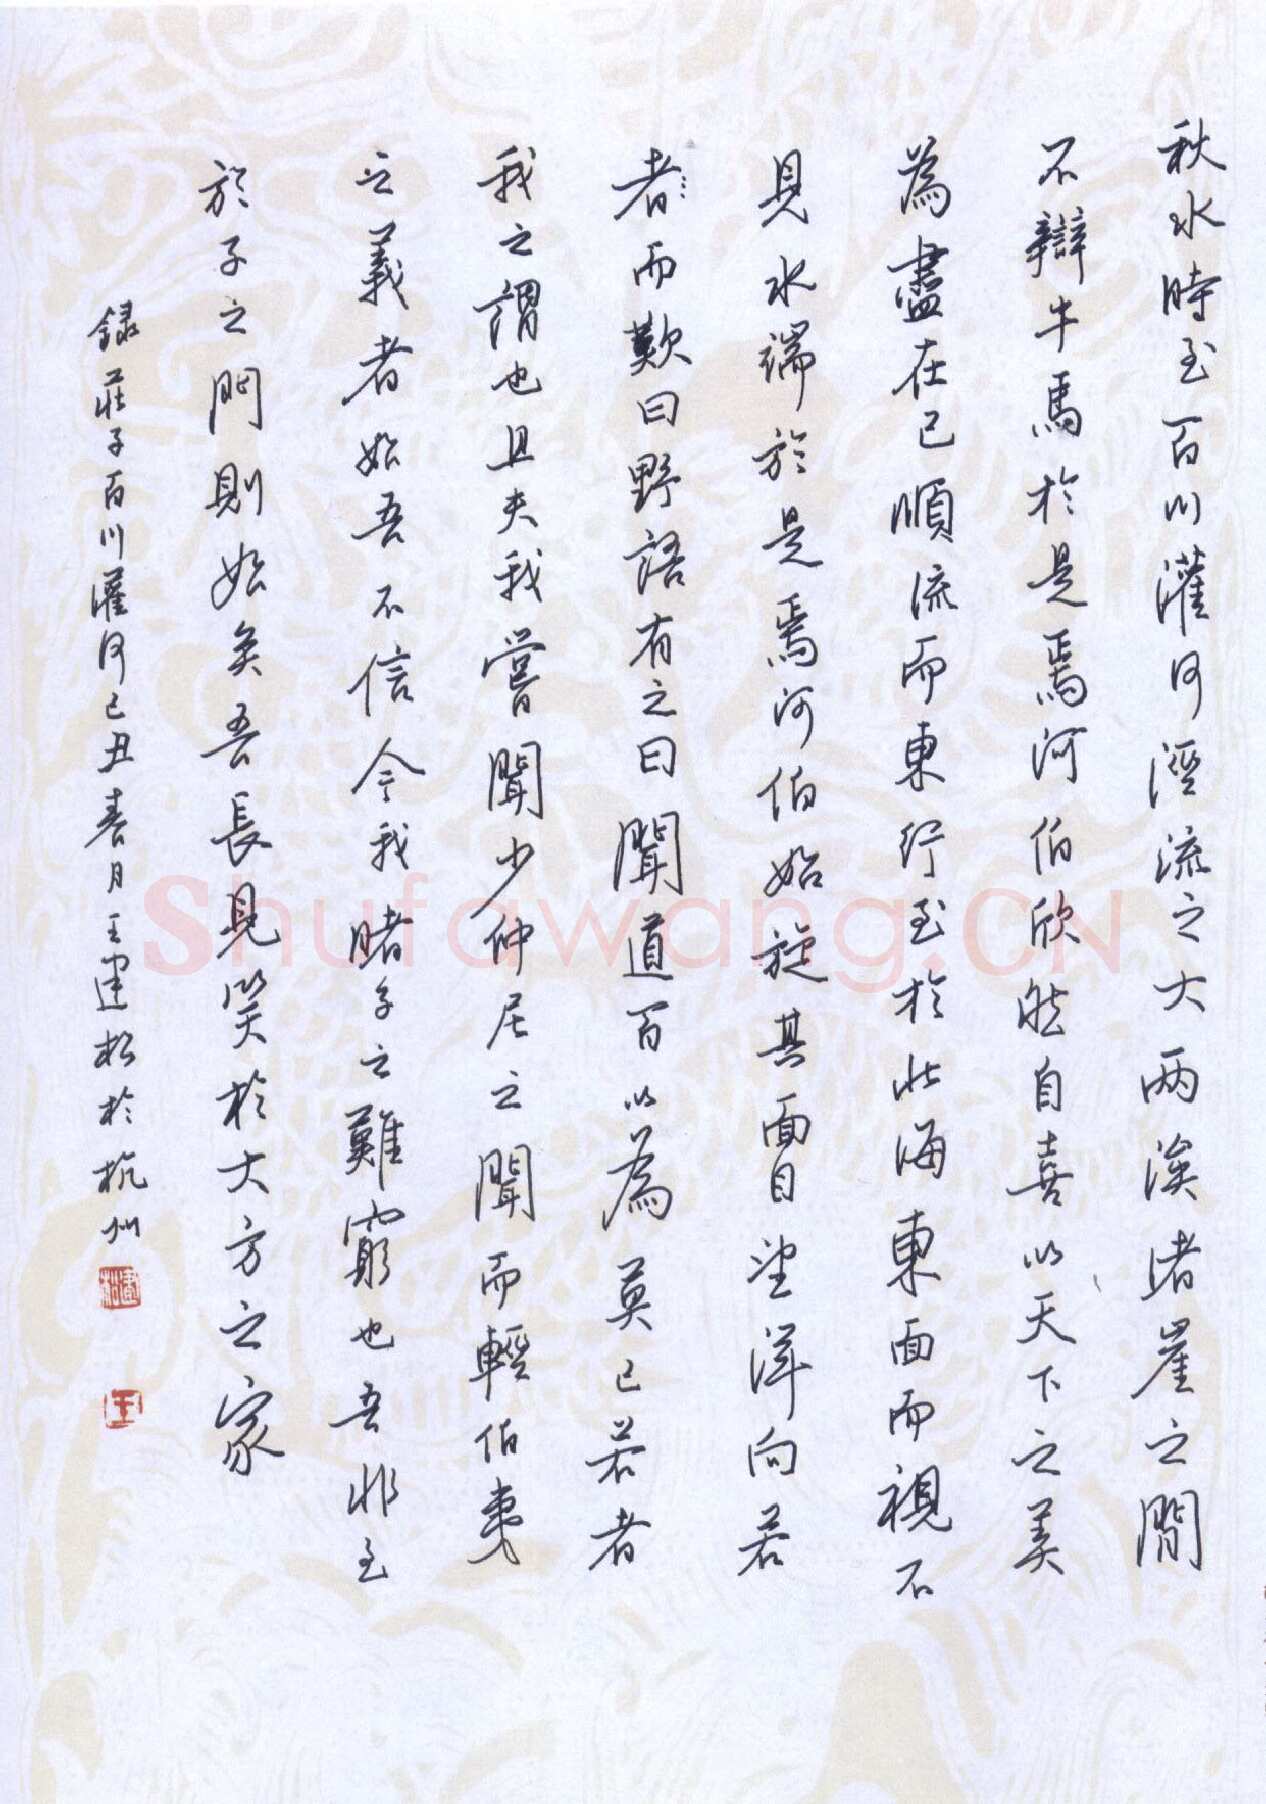 秋水時至百川灌河涇流之大两涘渚崖之間
不辯牛馬於是焉河伯欣然自喜以天下之美
為盡在己順流而東行至於北海東面而視不
見水端於是焉河伯始旋其面目望洋向若
者而歎曰野語有之曰聞道百以為莫己若者
我之謂也且夫我嘗聞少仲尼之聞而輕伯夷
之義者始吾不信今我睹子之難窮也吾非至
於子之門則始矣吾長見笑於大方之家
録莊子百川灌河己丑春月王建松於杭州
建松
王
Shufawang.CN